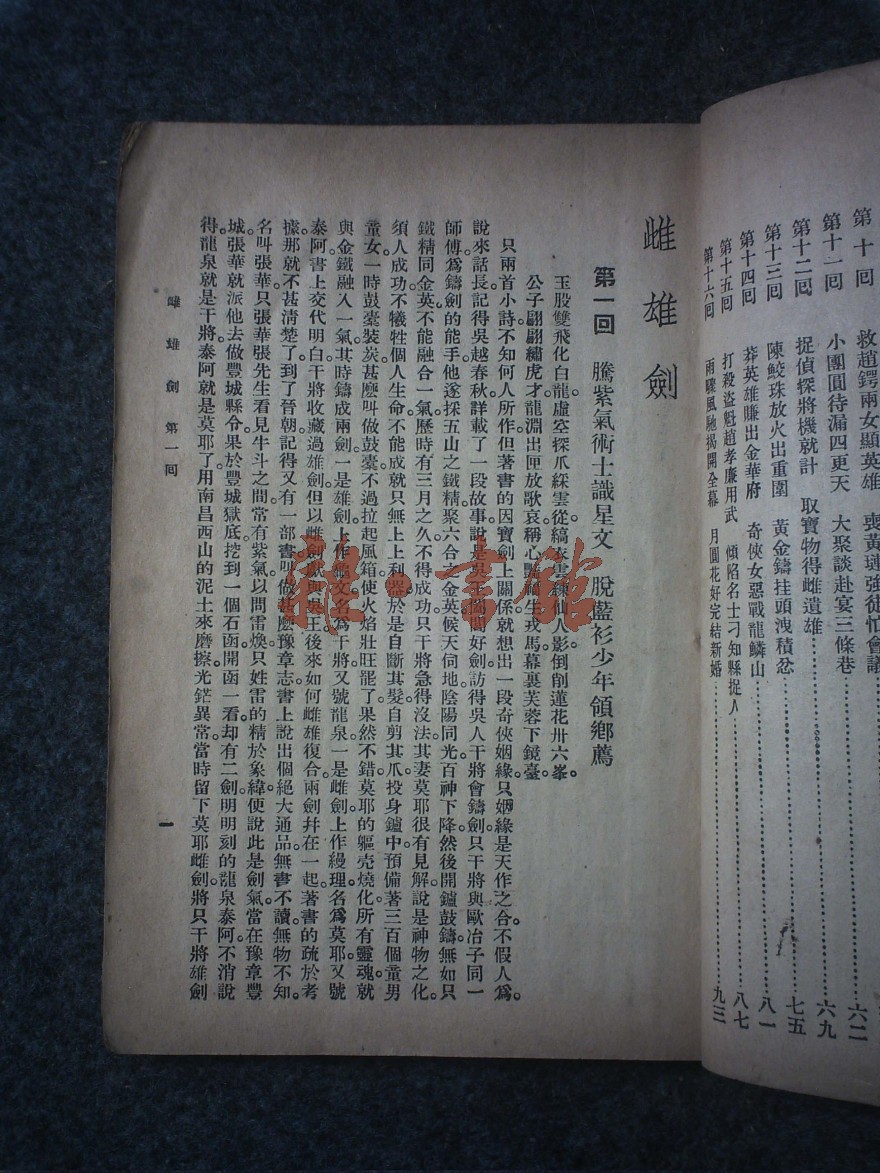 第十回　救趙鍔兩女顯英雄　喪黃璉強徒怕會議………六二
第十一回　小團圓待漏四更天　大聚談赴宴三條巷………六九
第十二回　捉偵探將機就計　取寶物得雌遺雄………七五
第十三回　陳鮫珠放火出重圍　黃金鑄挂頭洩積忿………八一
第十四回　莽英雄賺出金華府　奇俠女惡戰龍鱗山………八七
第十五回　打殺盜魁趙孝廉用武　傾陷名士刁知縣捉人
第十六回　雨驟風馳揭開全幕　月圓花好完結新婚………九三
雌雄劍
第一回　騰紫氣術士識星文　脫藍衫少年領鄉薦
玉股雙飛化白龍。虛空探爪綵雲從。縞衣雲綠仙人影。倒削蓮花卅六峯。
公子翩翩繡虎才。龍淵出匣放歌哀。稱心艷福生戎馬。幕裏芙蓉下鏡臺。
只兩首小詩。不知何人所作。但著書的因寶劍上關係。就想出一段奇俠姻緣。只姻緣是天作之合。不假人爲。
說來話長。記得吳越春秋。詳載了一段故事。說是吳王闔閭好劍。訪得吳人干將會鑄劍。只干將與歐冶子同一
師傅。爲鑄劍的能手。他遂採五山之鐵精。聚六合之金英。候天伺地。陰陽同光。百神下降。然後開鑪鼓鑄。無如只
鐵精同金英不能融合一氣。歷時有三月之久。不得成功。只干將急得沒法。其妻莫耶很有見解。說是神物之化。
須人成功。不犧牲個人生命。不能成就只無上上利器。於是自斷其髮。自剪其爪。投身鑪中。預備著三百個童男
童女。一時鼓橐裝炭。甚麼叫做鼓橐。不過拉起風箱。使火焰壯旺罷了。果然不錯。莫耶的軀壳燒化。所有靈魂就
與金鐵融入一氣。其時鑄成兩劍。一是雄劍。上作龜文。名爲干將。又號龍泉。一是雌劍。上作縵理。名爲莫耶。又號
泰阿。書上交代明白。干將收藏過雄劍。但以雌劍獻與吳王。後來如何雌雄復合。兩劍幷在一起。著書的疏於考
據。那就不甚清楚了。到了晉朝。記得又有一部書。叫做甚麼豫章志。書上說出個絕大通品。無書不讀。無物不知。
名叫張華。只張華張先生看見牛斗之間。常有紫氣。以問雷煥。只姓雷的精於象緯。便說此是劍氣。當在豫章豐
城。張華就派他去做豐城縣令。果於豐城獄底。挖到一個石函。開函一看。却有二劍。明明刻的龍泉泰阿。不消說
得。龍泉就是干將。泰阿就是莫耶了。用南昌西山的泥土來磨擦。光鋩異常。當時留下莫耶雌劍。將只干將雄劍
雌雄劍　第一回
一
雒·書館